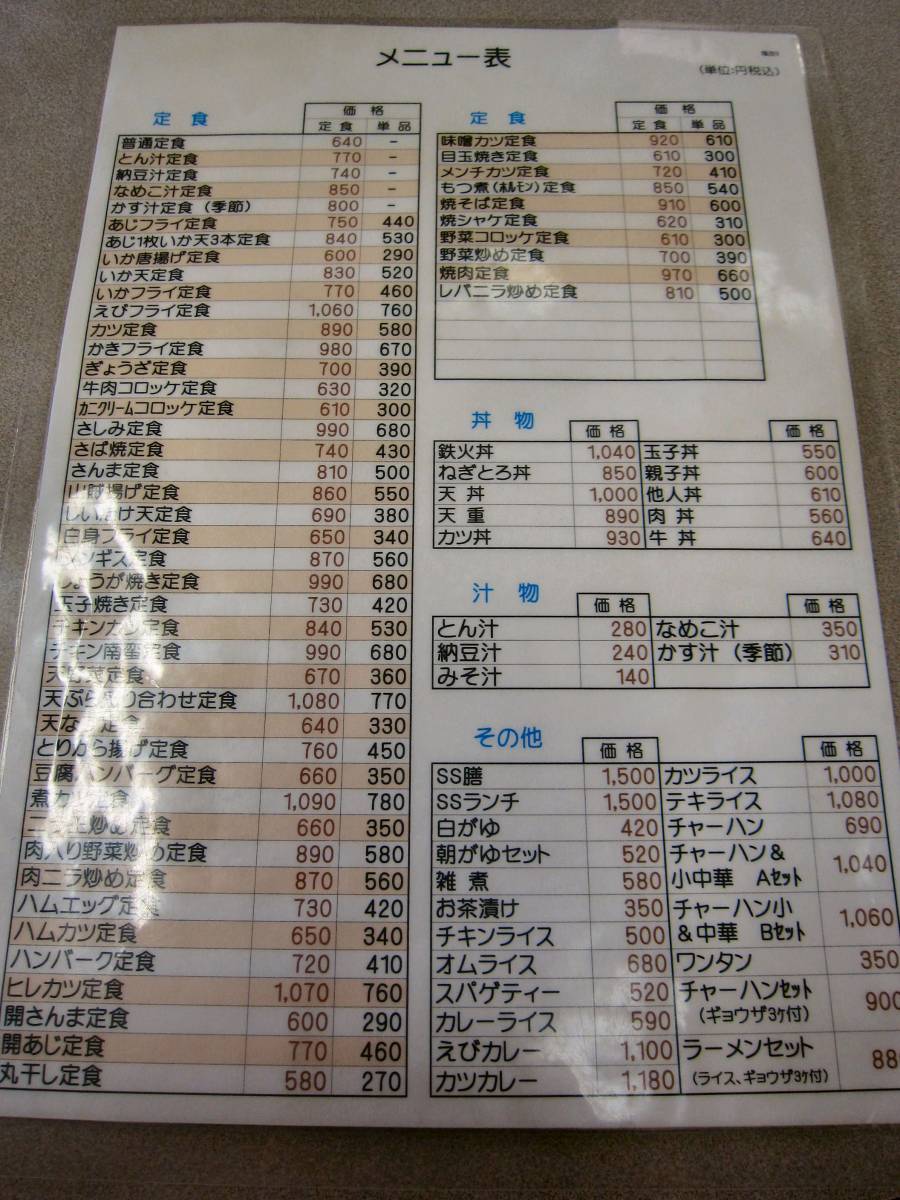 メニュー表
(単位:円税込)
定食
価格
定食 単品
普通定食 640 -
とん汁定食 770 -
納豆汁定食 740 -
なめこ汁定食 850 -
かす汁定食（季節） 800 -
あじフライ定食 750 440
あじ1枚いか天3本定食 840 530
いか唐揚げ定食 600 290
いか天定食 830 520
いかフライ定食 770 460
えびフライ定食 1,060 760
カツ定食 890 580
かきフライ定食 980 670
ぎょうざ定食 700 390
牛肉コロッケ定食 630 320
カニクリームコロッケ定食 610 300
さしみ定食 990 680
さば焼定食 740 430
さんま定食 810 500
山賊揚げ定食 860 550
しいたけ天定食 690 380
白身フライ定食 650 340
ギス定食 870 560
しょうが焼き定食 990 680
玉子焼き定食 730 420
チキンカツ定食 840 530
チキン南蛮定食 990 680
天 定食 670 360
天ぷら盛り合わせ定食 1,080 770
天な 定食 640 330
とりから揚げ定食 760 450
豆腐ハンバーグ定食 660 350
煮カツ定食 1,090 780
ニラ玉炒め定食 660 350
肉入り野菜炒め定食 890 580
肉ニラ炒め定食 870 560
ハムエッグ定食 730 420
ハムカツ定食 650 340
ハンバーク定食 720 410
ヒレカツ定食 1,070 760
開さんま定食 600 290
開あじ定食 770 460
丸干し定食 580 270
定食
価格
定食 単品
味噌カツ定食 920 610
目玉焼き定食 610 300
メンチカツ定食 720 410
もつ煮(ホルモン)定食 850 540
焼そば定食 910 600
焼シャケ定食 620 310
野菜コロッケ定食 610 300
野菜炒め定食 700 390
焼肉定食 970 660
レバニラ炒め定食 810 500
丼物
価格 価格
鉄火丼 1,040 玉子丼 550
ねぎとろ丼 850 親子丼 600
天丼 1,000 他人丼 610
天重 890 肉丼 560
カツ丼 930 牛丼 640
汁物
価格 価格
とん汁 280 なめこ汁 350
納豆汁 240 かす汁（季節） 310
みそ汁 140
その他
価格 価格
SS膳 1,500 カツライス 1,000
SSランチ 1,500 テキライス 1,080
白がゆ 420 チャーハン 690
朝がゆセット 520 チャーハン&
雑煮 580 小中華 Aセット 1,040
お茶漬け 350 チャーハン小
チキンライス 500 &中華 Bセット 1,060
オムライス 680 ワンタン 350
スパゲティー 520 チャーハンセット
カレーライス 590 (ギョウザ3ケ付) 900
えびカレー 1,100 ラーメンセット
カツカレー 1,180 (ライス、ギョウザ3ケ付) 88